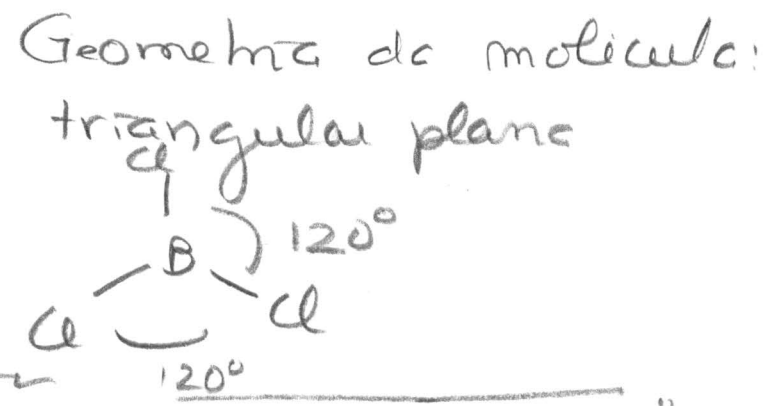 Geometria da molécula:
triangular plana
Cl
B
120°
Cl
Cl
120°